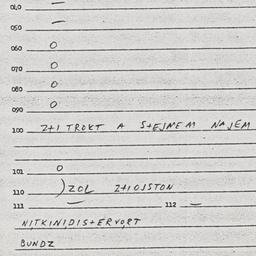 040 —
050 —
060 O
070 O
080 O
090 O
100 2+1 TROKT A S+EJMEM NAJEM
101 O
110 )ZOL 2+10JSTON
111 — 112 —
NITKINIDIS+ERVORT
BUNDZ